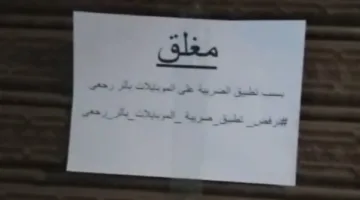 مغلق
بسبب تطبيق الضريبة على الموبايلات بأثر رجعي
#نرفض_تطبيق_ضريبة_الموبايلات_بأثر_رجعي